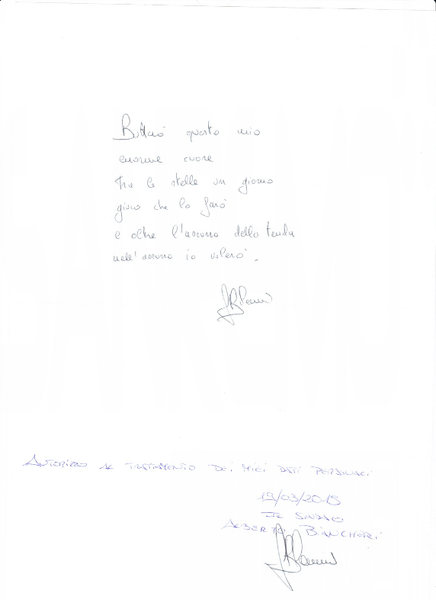 Butterò questo mio
enorme cuore
tra le stelle un giorno
giuro che lo farò
e oltre l'azzurro della tenda
nell'azzurro io volerò.
AUTORIZZO AL TRATTAMENTO DEI MIEI DATI PERSONALI
19/03/2015
ALBERTO BIANCHORI